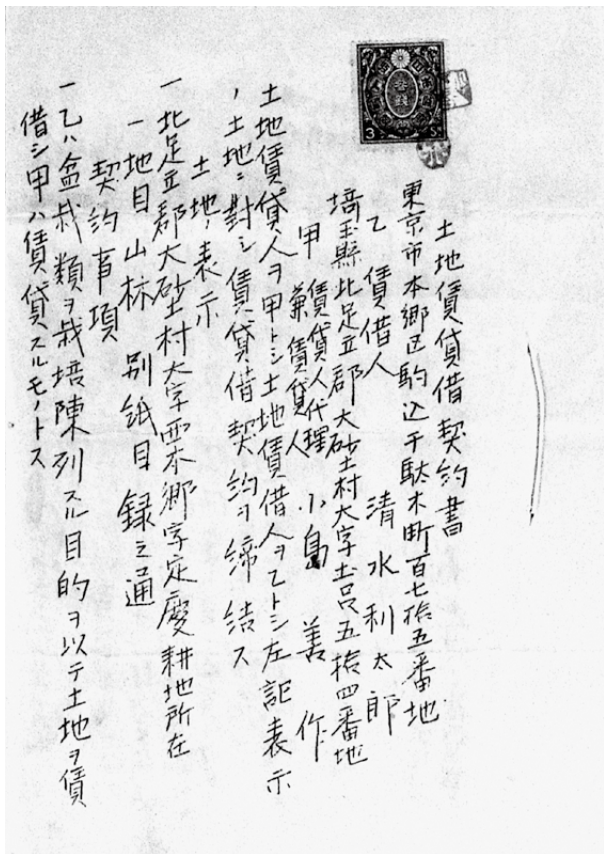 土地賃貸借契約書
東京市本郷区駒込千駄木町百七拾五番地
乙 賃借人 清水利太郎
埼玉縣北足立郡大砂土村大字土呂五拾四番地
甲 賃貸人代理
兼賃貸人 小島善作
土地賃貸人ヲ甲トシ土地賃借人ヲ乙トシ左記表示
ノ土地ニ対シ賃貸借契約ヲ締結ス
土地ノ表示
一北足立郡大砂土村大字西本郷字定慶耕地所在
一地目山林 別紙目録之通
契約事項
一乙ハ盆栽類ヲ栽培陳列スル目的ヲ以テ土地ヲ賃
借シ甲ハ賃貸スルモノトス
3 Sn